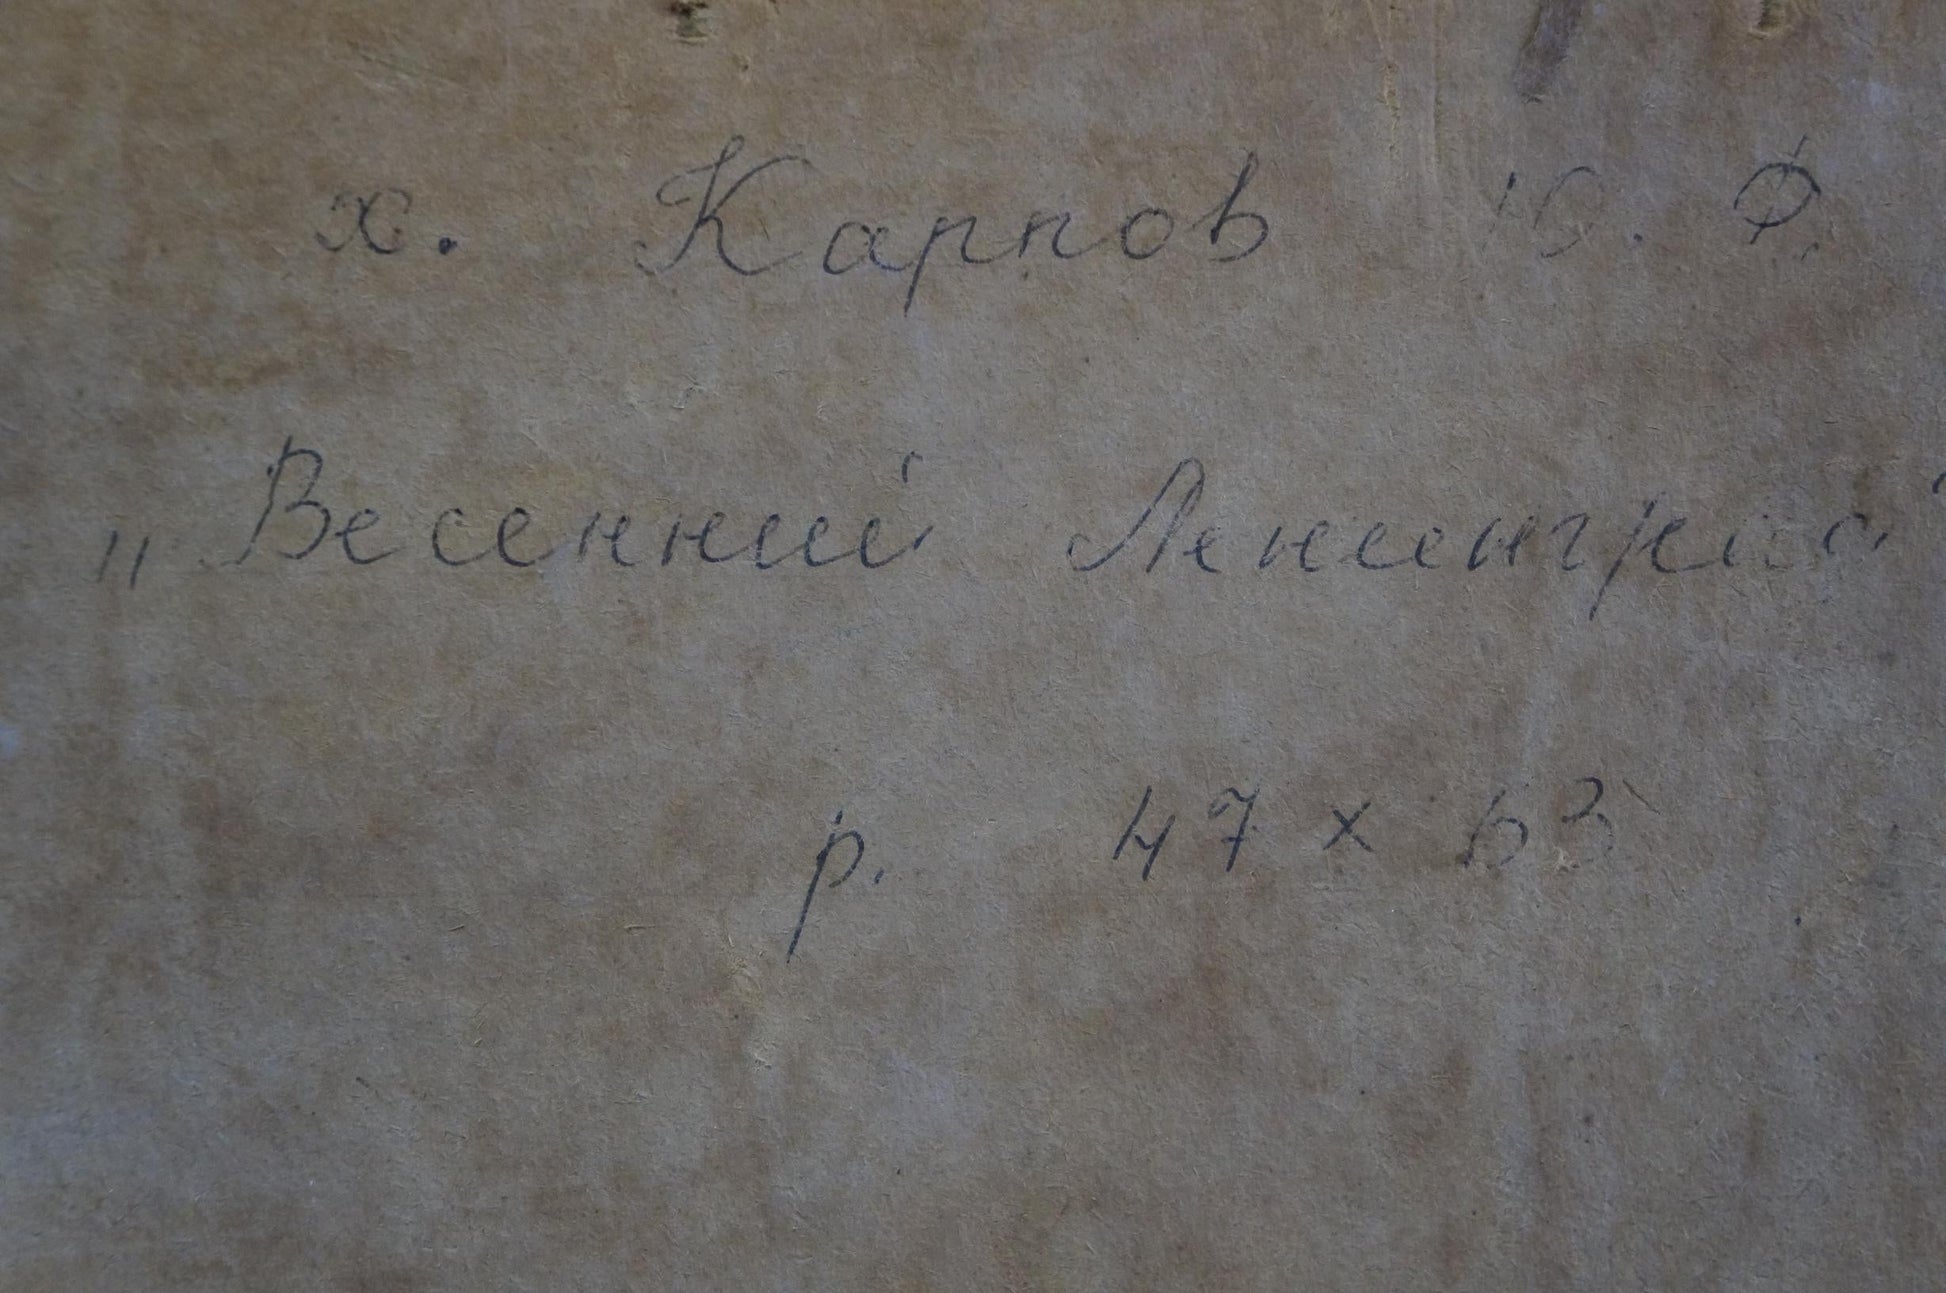 х. Карпов Ю. Ф.
„Весенний Ленинград"
р. 47 х 63